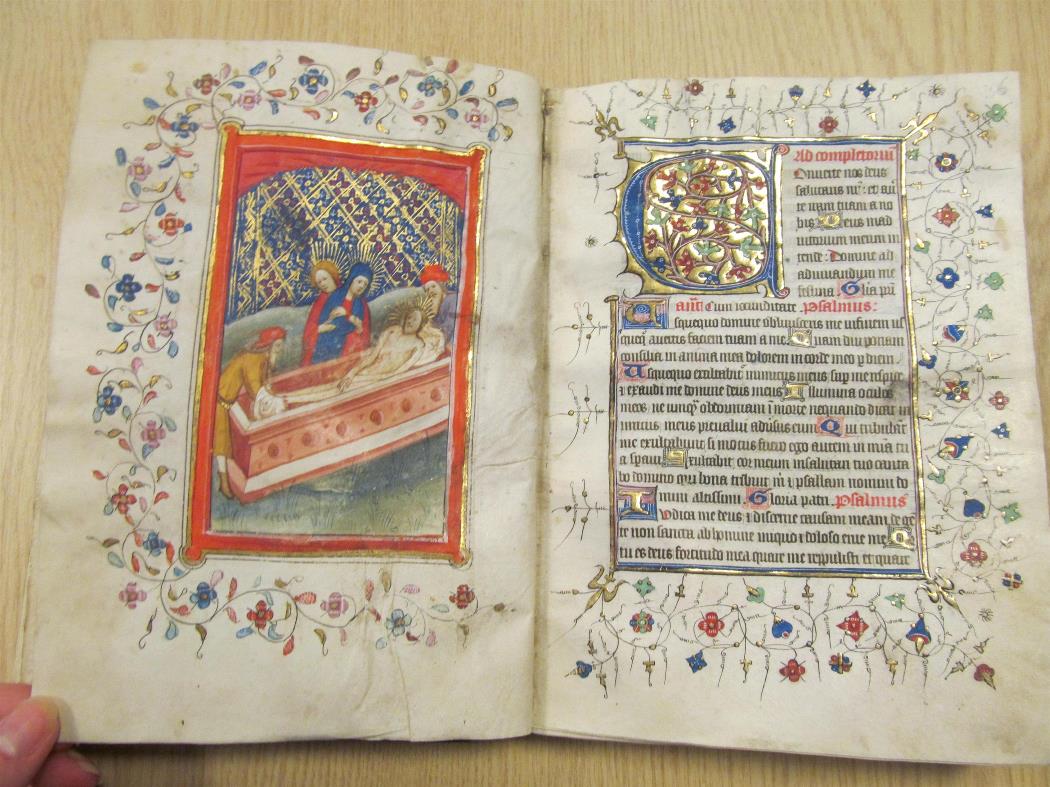 Ad completoriū
Onuerte nos deus
salutaris nr̄: et aū
te iram tuam a no
bis Deus in ad
iutorium meum in
tende: Domine ad
adiuuandum me
festina. Glīa pri
añ Cum iocunditate. Psalmus:
squequo domine obliuisceris me in finem us
quequo auertis faciem tuam a me Quam diu ponam
consilia in anima mea dolorem in corde meo p diem
Usquequo exaltabit inimicus meus sup me respice
⁊ exaudi me domine deus meus Illumina oculos
meos ne unqͣ obdormiam ī morte nequando dicat in
imicus meus preualui aduersus eum Qui tribulāt
me exultabunt si motus fuero ego autem in mīa tu
a speraui Exultabit cor meum in salutari tuo canta
bo domino qui bona tribuit m̄ ⁊ psallam nomini do
mini altissimi. Gloria patri. Psalmus
Iudica me deus ⁊ discerne causam meam de ge
te non sancta ab homine iniquo ⁊ doloso erue me Q
tu es deus fortitudo mea quare me reppulisti et quare